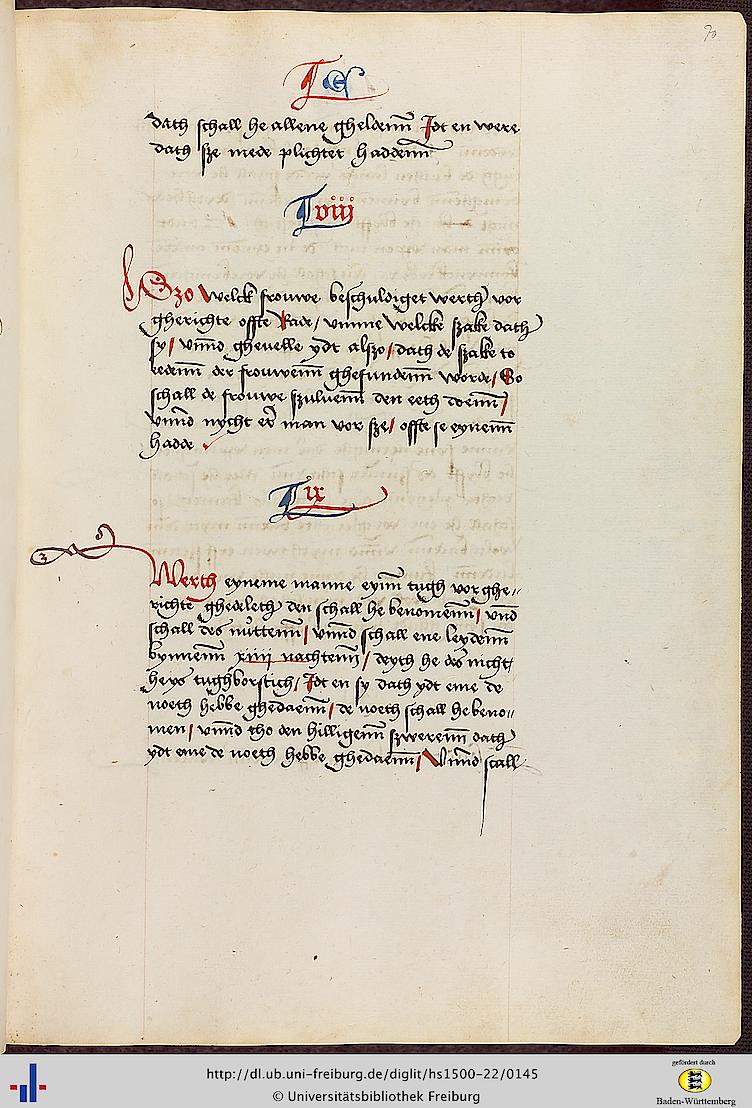 70
dath schall he allene gheldenn Jdt en were
dath sze mede plichtet haddenn
viij
Szo welck frouwe beschuldiget werth vor
gherichte offte Rade / vmme welcke szake dath
sy / vnnd ghevelle ydt alszo / dath de szake to
eedenn der frouwenn ghefundenn worde / So
schall de frouwe szuluenn den eeth doenn /
vnnd nycht er man vor sze / offte se eynenn
hadde
ix
Werth eyneme manne eynn tugh vor ghe-
richte ghedeleth den schall he benomenn / vnd
schall des nuttenn / vnnd schall ene leydenn
bynnenn xiiij nachtenn / deyth he des nicht /
heys tughborstich / Jdt en sy dath ydt eme de
noeth hebbe ghedaenn / de noeth schall he beno-
men / vnnd tho den hilligenn szwerenn dath
ydt eme de noeth hebbe ghedaenn / Vnnd schall
http://dl.ub.uni-freiburg.de/diglit/hs1500-22/0145
© Universitätsbibliothek Freiburg
gefördert durch
Baden-Württemberg